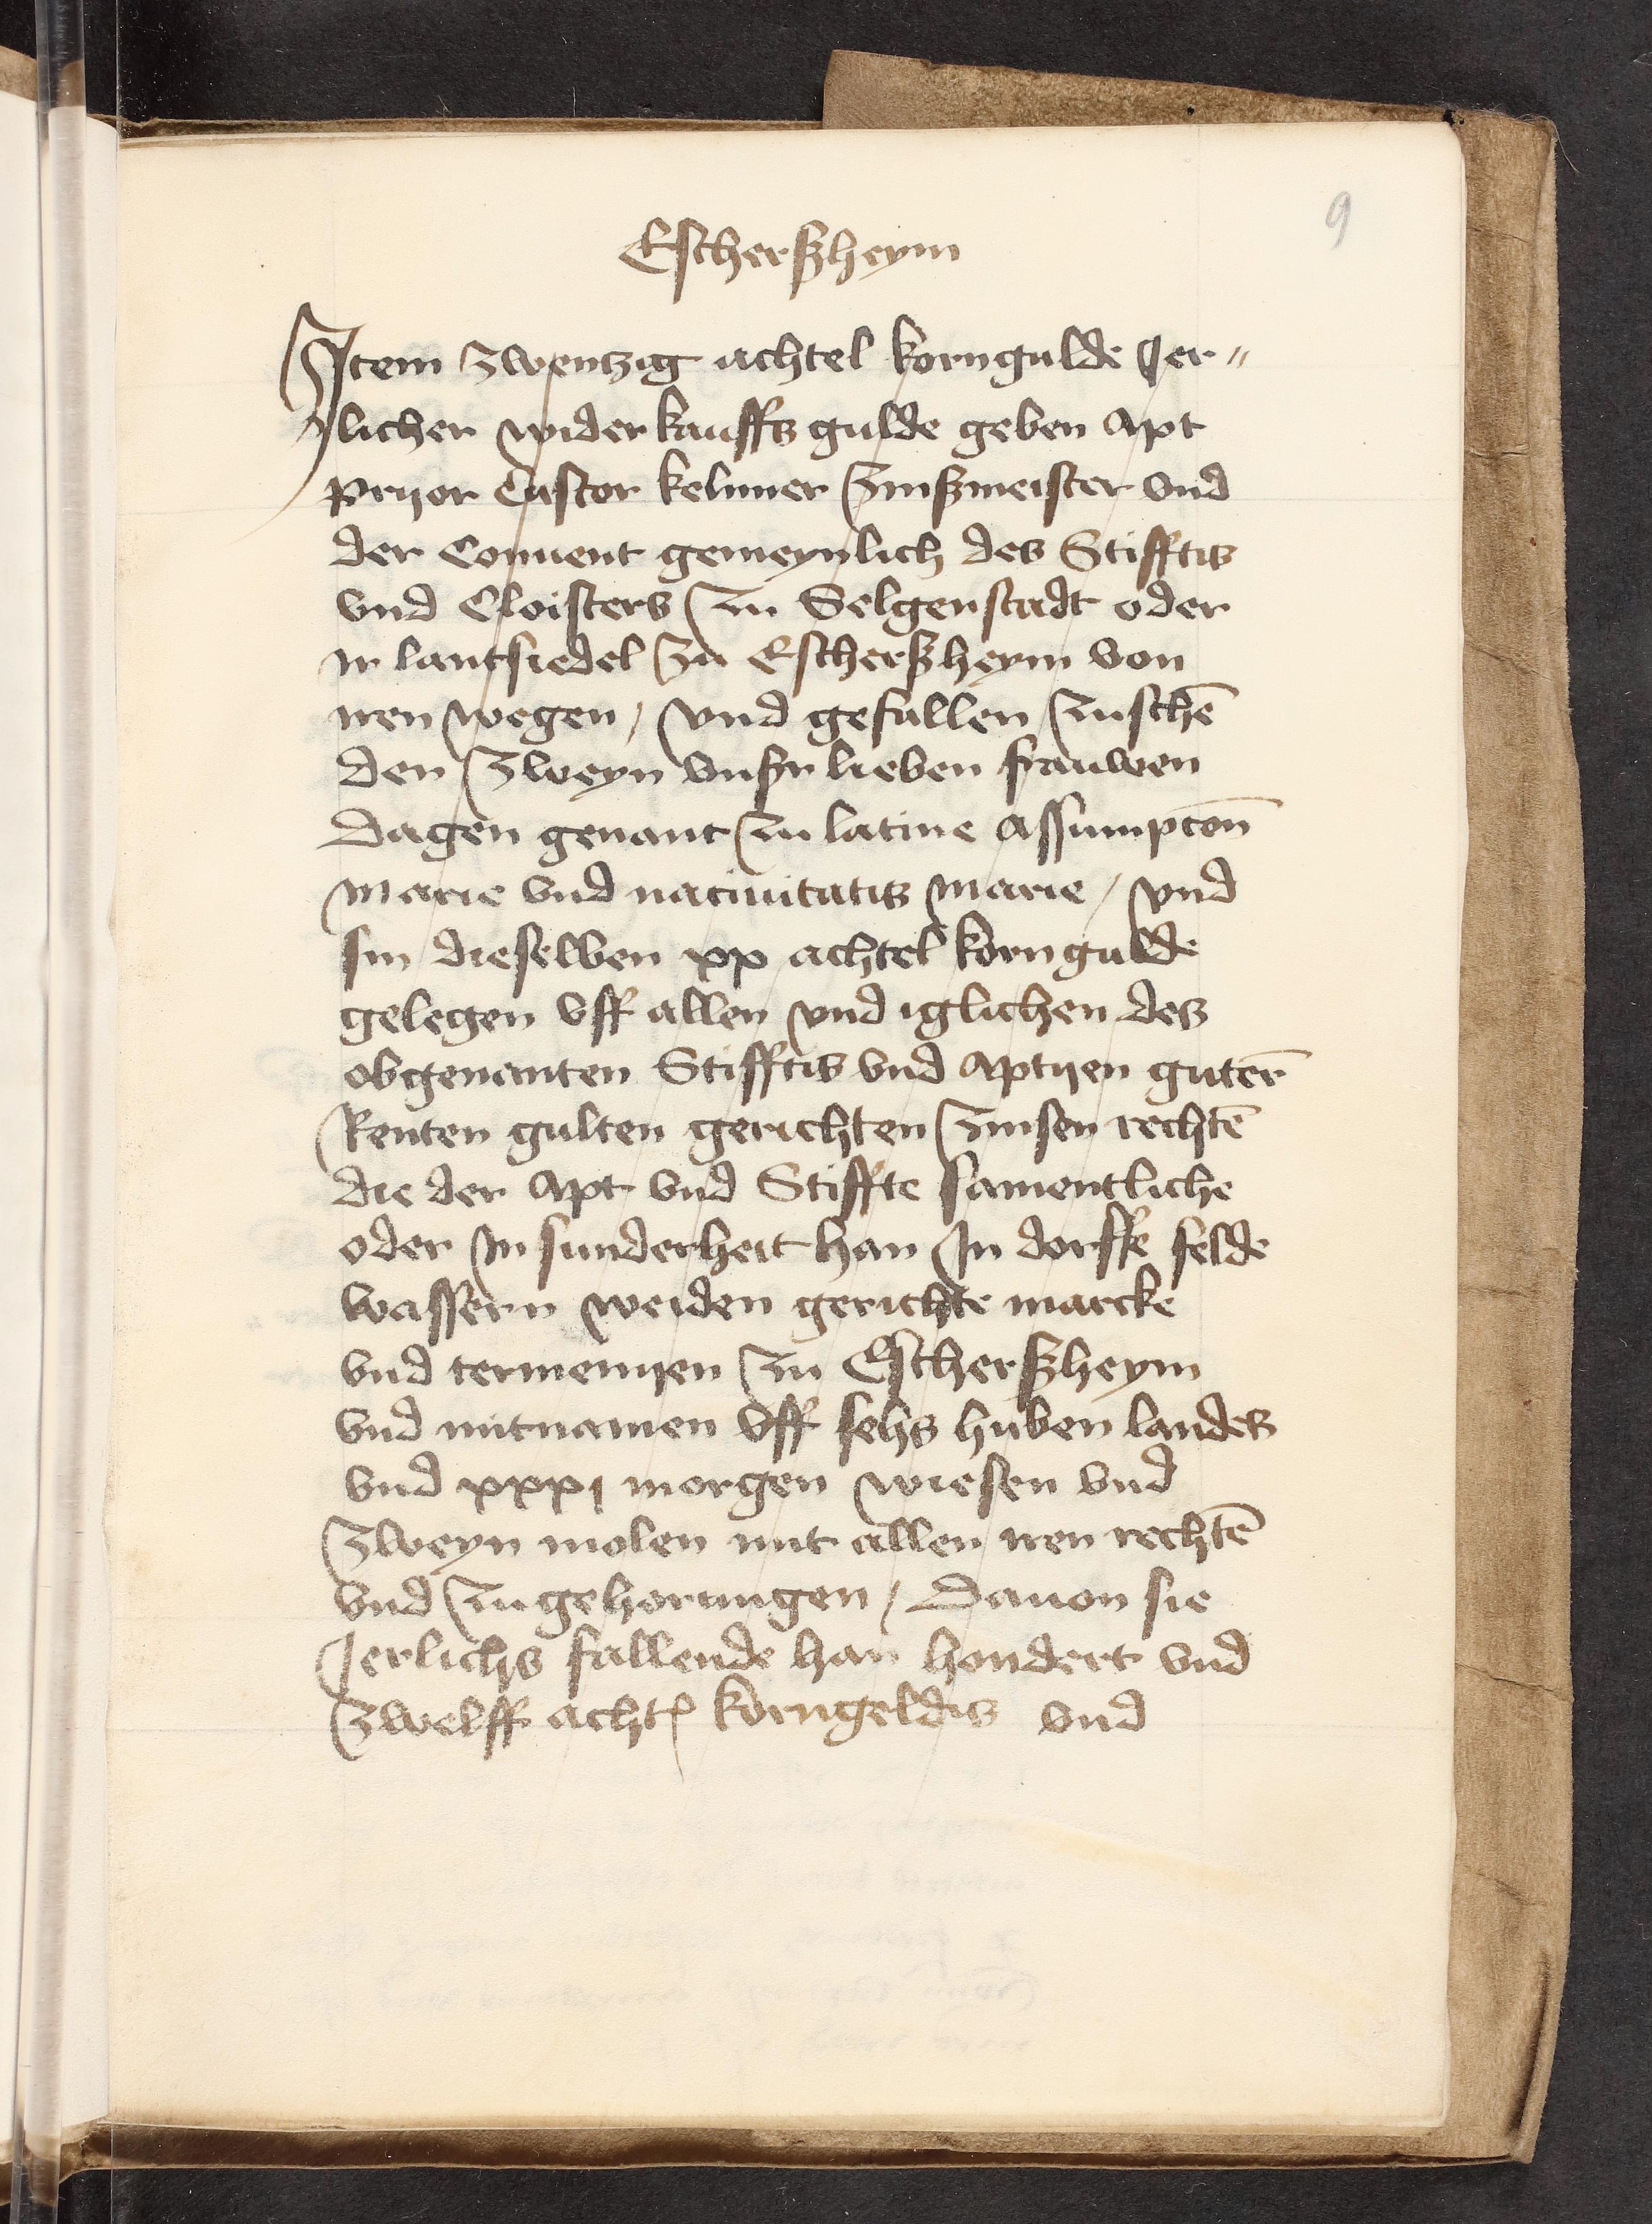 9
Escherßheym
Item zwentzig achtel korngulde Jer〃
licher widerkauffs gulde geben Apt
Prijor Custor kelnner zinßmeister vnd
der Conuent gemeynlich des Stifftis
vnd Cloisters zu Selgenstadt oder
ir lantsiedel zu Escherßheym von
iren wegen / vnd gefallen zuschē
den zweyn vnßer lieben frauwen
dagen genant zu latine Assumpcōn
marie vnd natiuitatis marie / vnd
sin dieselben xx achtel korngulde
gelegen vff allen vnd iglichen des
obgenanten Stifftis vnd Aptijen guter̄
Renten gulten gerichten zinsen rechtē
die der Apt vnd Stiffte samentliche
oder In sunderheit han In dorffe felde
wassern weiden gerichte marcke
vnd termenijen zu Escherßheym
vnd mitnamen vff sehs huben landes
vnd xxxj morgen wiesen vnd
zweyn molen mit allen iren rechtē
vnd zugehorungen / Dauon sie
Jerlichs fallende han hondert vnd
zwelff acht korngeldis vnd